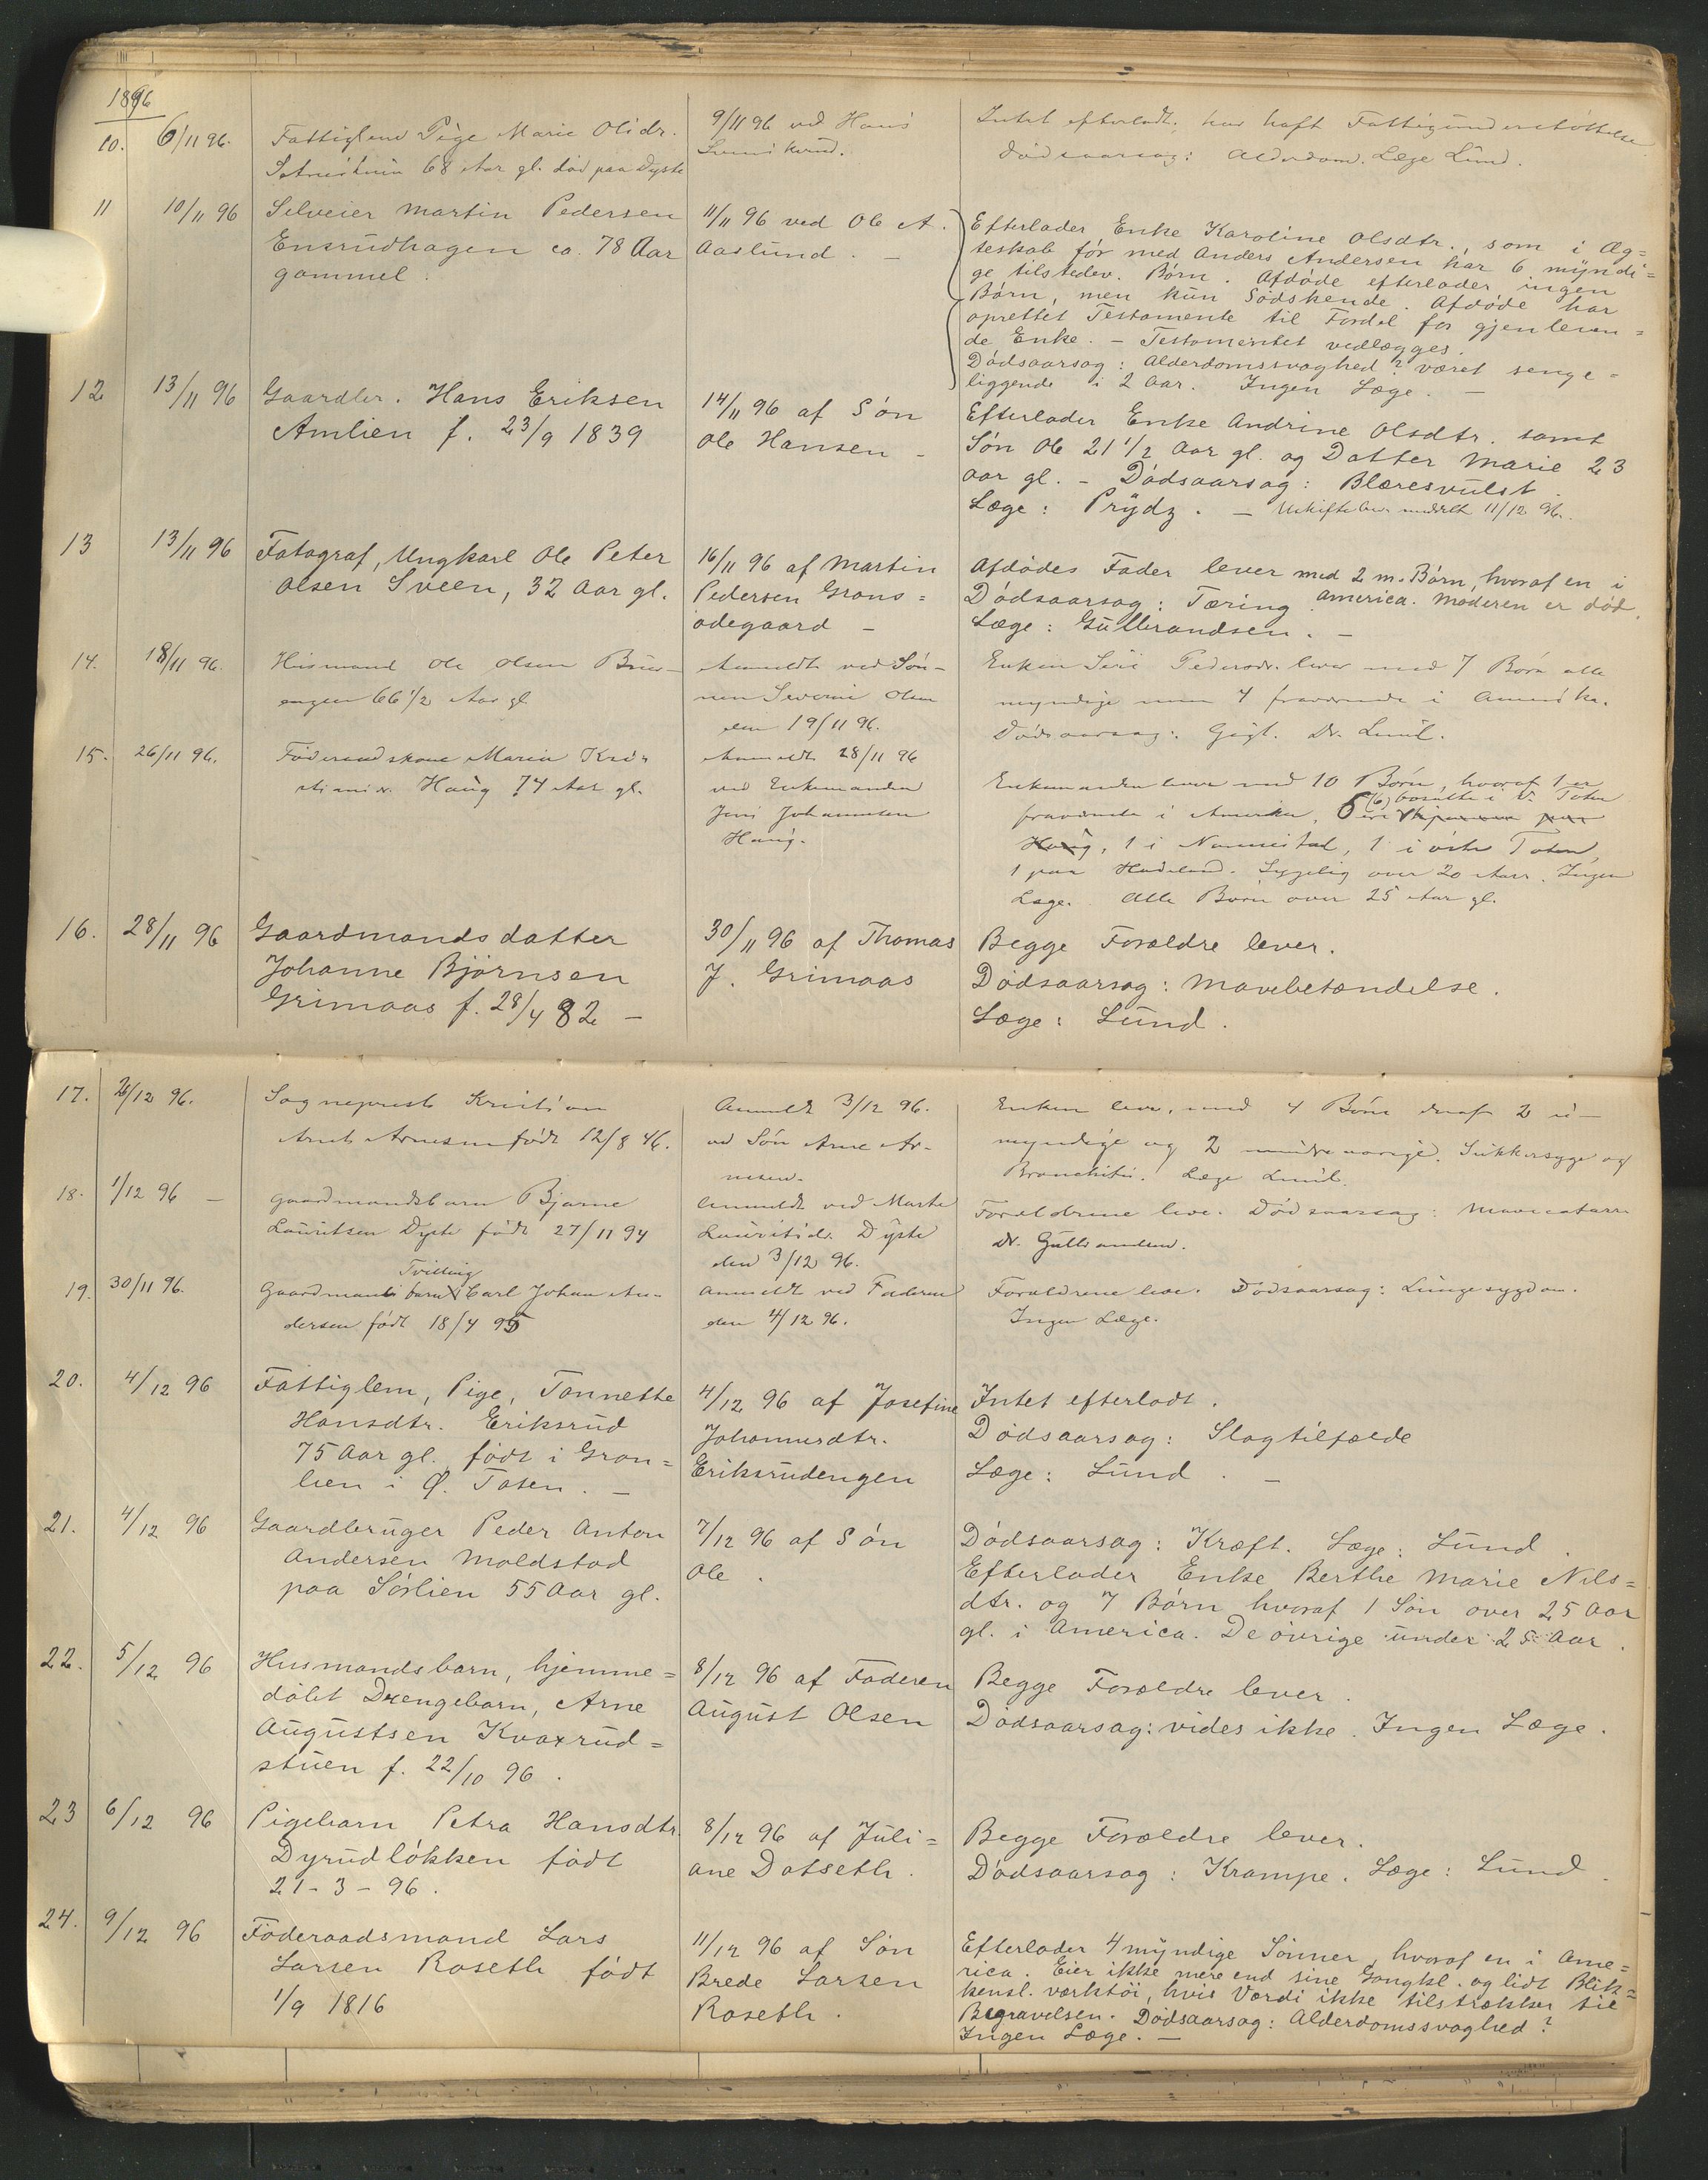 1896
10. 6/11 96. Fattiglem Pige Marie Olsdr. 9/11 96 ved Hans Intet efterladt, har haft Fattigunderstøttelse
68 Aar gl. død paa Dyste Dødsaarsag: Alderdom. Læge Lund.
11 10/11 96 Silveier Martin Pedersen 11/11 96 ved Ole A. Efterlader Enke Karoline Olsdtr., som i Æg=
Ensrudhagen ca. 78 Aar Aaslund. — teskab før med Anders Andersen har 6 myndi=
gammel. ge tilstedev. Børn. Afdøde efterlader ingen
Børn, men kun Sødskende. Afdøde har
oprettet Testamente til Fordel for gjenleven=
de Enke. — Testamentet vedlægges.
Dødsaarsag: Alderdomssvaghed? været senge=
liggende i 2 Aar. Ingen Læge. —
12 13/11 96 Gaardbr. Hans Eriksen 14/11 96 af Søn Efterlader Enke Andrine Olsdtr. samt
Amlien f. 23/9 1839 Ole Hansen — Søn Ole 21 1/2 Aar gl. og Datter Marie 23
Aar gl. — Dødsaarsag: Blæresvulst.
Læge: Prydz. — Uskiftebev. meddelt 11/12 96.
13 13/11 96 Fotograf, Ungkarl Ole Peter 16/11 96 af Martin Afdødes Fader lever med 2 m. Børn, hvoraf en i
Olsen Sveen, 32 Aar gl. Pedersen Grøns= Dødsaarsag: Tæring. America. Moderen er død.
ødegaard — Læge: Gulbrandsen. —
14. 18/11 96. Husmand Ole Olsen Anmeldt ved Søn- Enken Siri Pedersdr. lever med 7 Børn alle
engen 66 1/2 Aar gl nen Severin Olsen myndige men 4 fraværende i Amerika.
den 19/11 96. Dødsaarsag: Gigt. Dr. Lund.
15. 26/11 96. Føderaadskone Maria Kri-
stiansdr. Haug 74 Aar gl. Anmeldt 28/11 96
ved Enkemanden
Jens Johannesen
Haug. Enkemanden lever med 10 Børn, hvoraf 1 er
fraværende i Amerika, 6 (6) bosatte i V. Toten
Haug, 1 i Nannestad, 1 i østre Toten,
1 paa Hadeland. Sygelig over 20 Aar. Ingen
Læge. Alle Børn over 25 Aar gl.
16. 28/11 96 Gaardmandsdatter 30/11 96 af Thomas Begge Forældre lever.
Johanne Bjørnsen J. Grimaas Dødsaarsag: Mavebetændelse.
Grimaas f. 28/4 82 — Læge: Lund.
17. 2/12 96. Sogneprest Kristian Anmeldt 3/12 96. Enken lever, med 4 Børn deraf 2 u-
Arnesen født 12/8 46. ved Søn Arne Ar- myndige og 2 mindreaarige. Sukkersyge og
nesen. Bronchitis. Læge Lund.
18. 1/12 96 — Gaardmandsbarn Bjarne Anmeldt ved Marte Forældrene lever. Dødsaarsag: Mavecatarr
Lauritsen Dyste født 27/11 94 Lauritsdr. Dyste Dr. Gulbrandsen.
den 3/12 96.
19. 30/11 96. Tvilling
Gaardmandsbarn Carl Johan An- Anmeldt ved Faderen Forældrene lever. Dødsaarsag: Lungesygdom.
dersen født 18/4 95 den 4/12 96. Ingen Læge.
20. 4/12 96 Fattiglem, Pige, Tonnette 4/12 96 af Josefine Intet efterladt.
Hansdtr. Eriksrud Johannesdtr. Dødsaarsag: Slagtilfælde
75 Aar gl. født i Gron= Eriksrudengen Læge: Lund. —
lien i Ø. Toten. —
21. 4/12 96 Gaardbruger Peder Anton 7/12 96 af Søn Dødsaarsag: Kræft. Læge: Lund.
Andersen Moldstad Ole. Efterlader Enke Berthe Marie Nils=
paa Sørlien 55 Aar gl. dtr. og 7 Børn hvoraf 1 Søn over 25 Aar
gl. i America. De øvrige under 25 Aar.
22. 5/12 96 Husmandsbarn, hjemme= 8/12 96 af Faderen Begge Forældre lever.
døbt Drengebarn, Arne August Olsen Dødsaarsag: vides ikke. Ingen Læge.
Augustsen Kvaxrud=
stuen f. 22/10 96.
23 6/12 96 Pigebarn Petra Hansdtr. 8/12 96 af Juli= Begge Forældre lever.
Dyrudløkken født ane Dotseth. Dødsaarsag: Krampe. Læge: Lund.
21-3-96.
24. 9/12 96 Føderaadsmand Lars 11/12 96 af Søn Efterlader 4 myndige Sønner, hvoraf en i Ame=
Larsen Roseth født Brede Larsen rica. Eier ikke mere end sine Gangkl. og lidt Blik=
1/9 1816 Roseth. kensl. værktøi, hvis Værdi ikke tilstrækker til
Begravelsen. Dødsaarsag: Alderdomssvaghed?
Ingen Læge. —